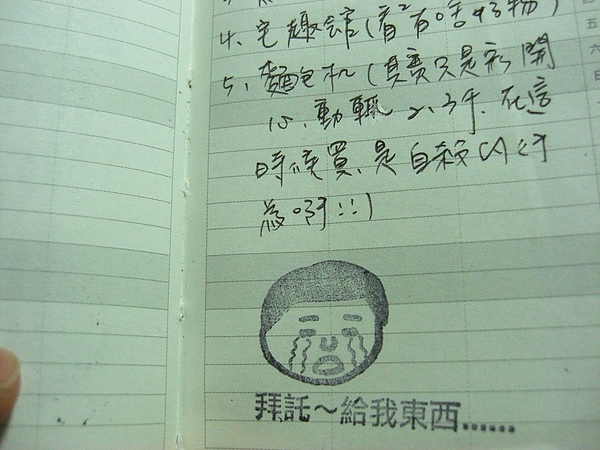 4、宅趣舘(看2有啥好物)
5、麵包机(其實只是
動輒2、3千、在這
時候買、是自殺的行
為啊!!)
拜託～給我東西......
五
六
日